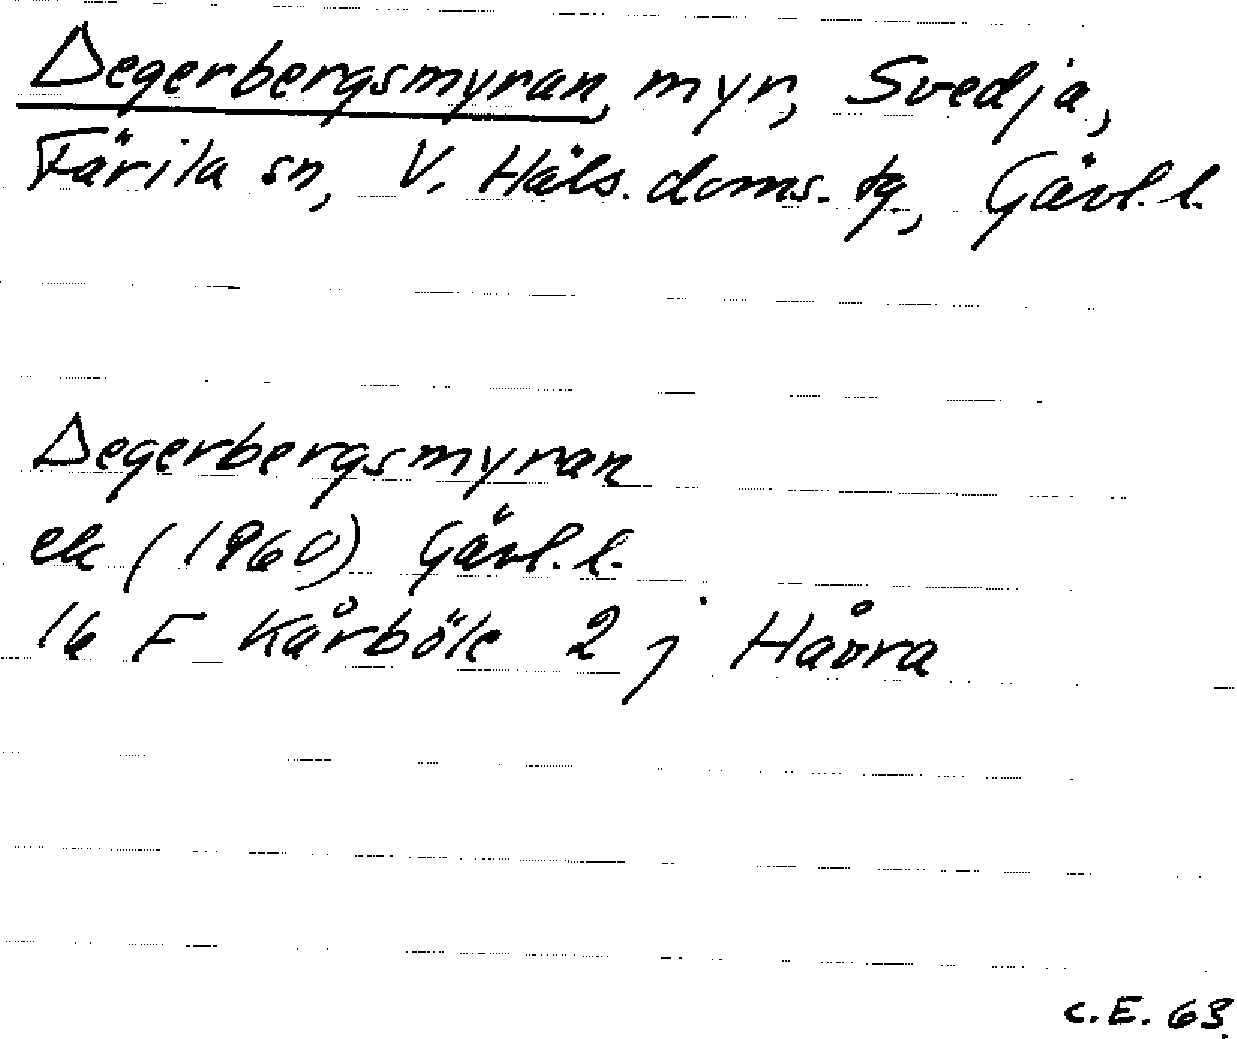 Degerbergsmyran, myr, Svedja,
Färila sn, V. Häls. doms. tg., Gävl.l.
Degerbergsmyran
ek (1960) Gävl.l.
16 F Kårböle 2 j Håvra
C.E. 63.